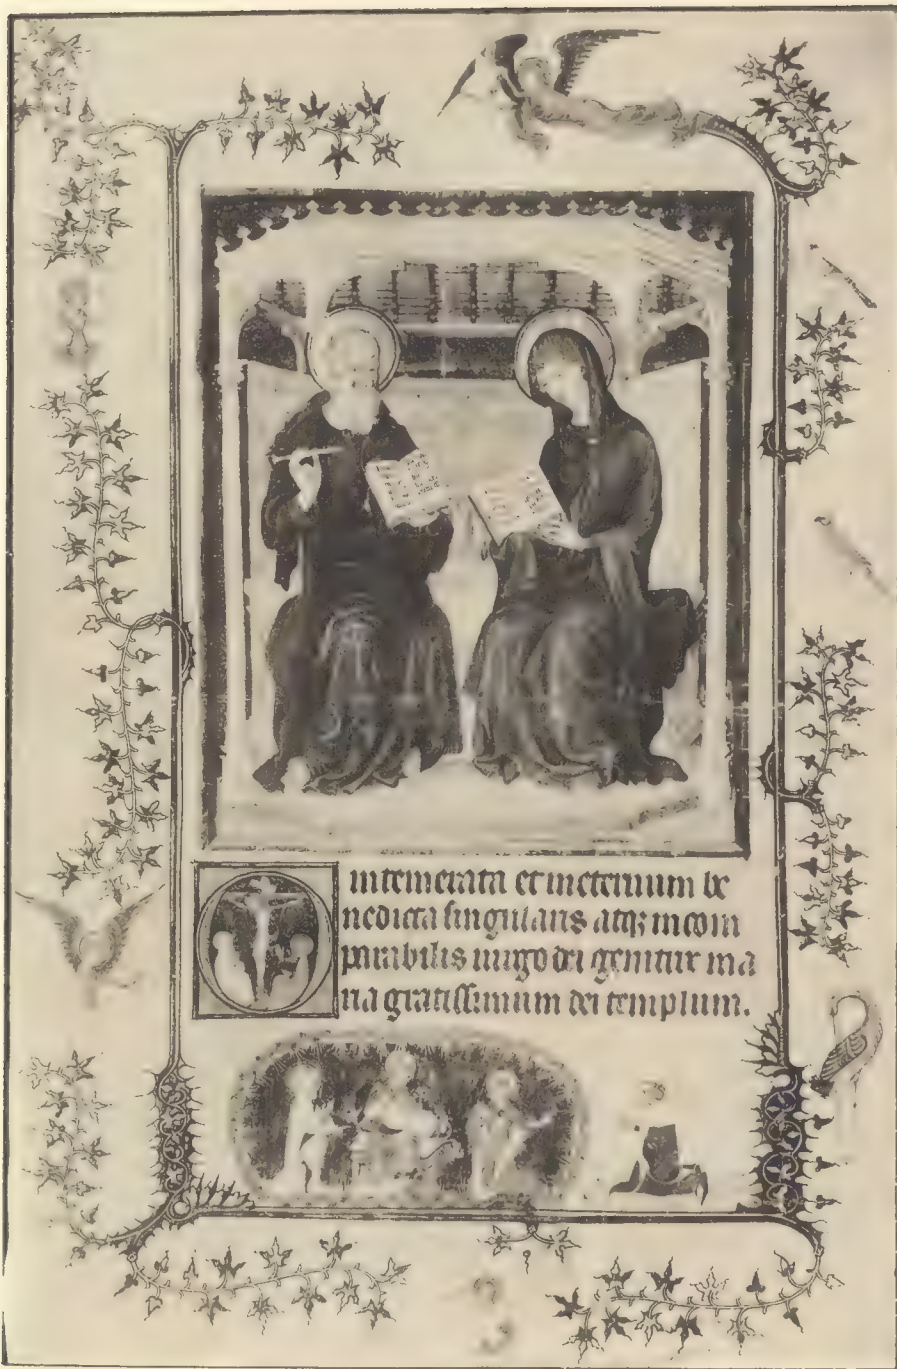 intemerata et ineternum be
nedicta singularis atqꝫ incom
parabilis uirgo dei genitrix ma
ria gratissimum dei templum.